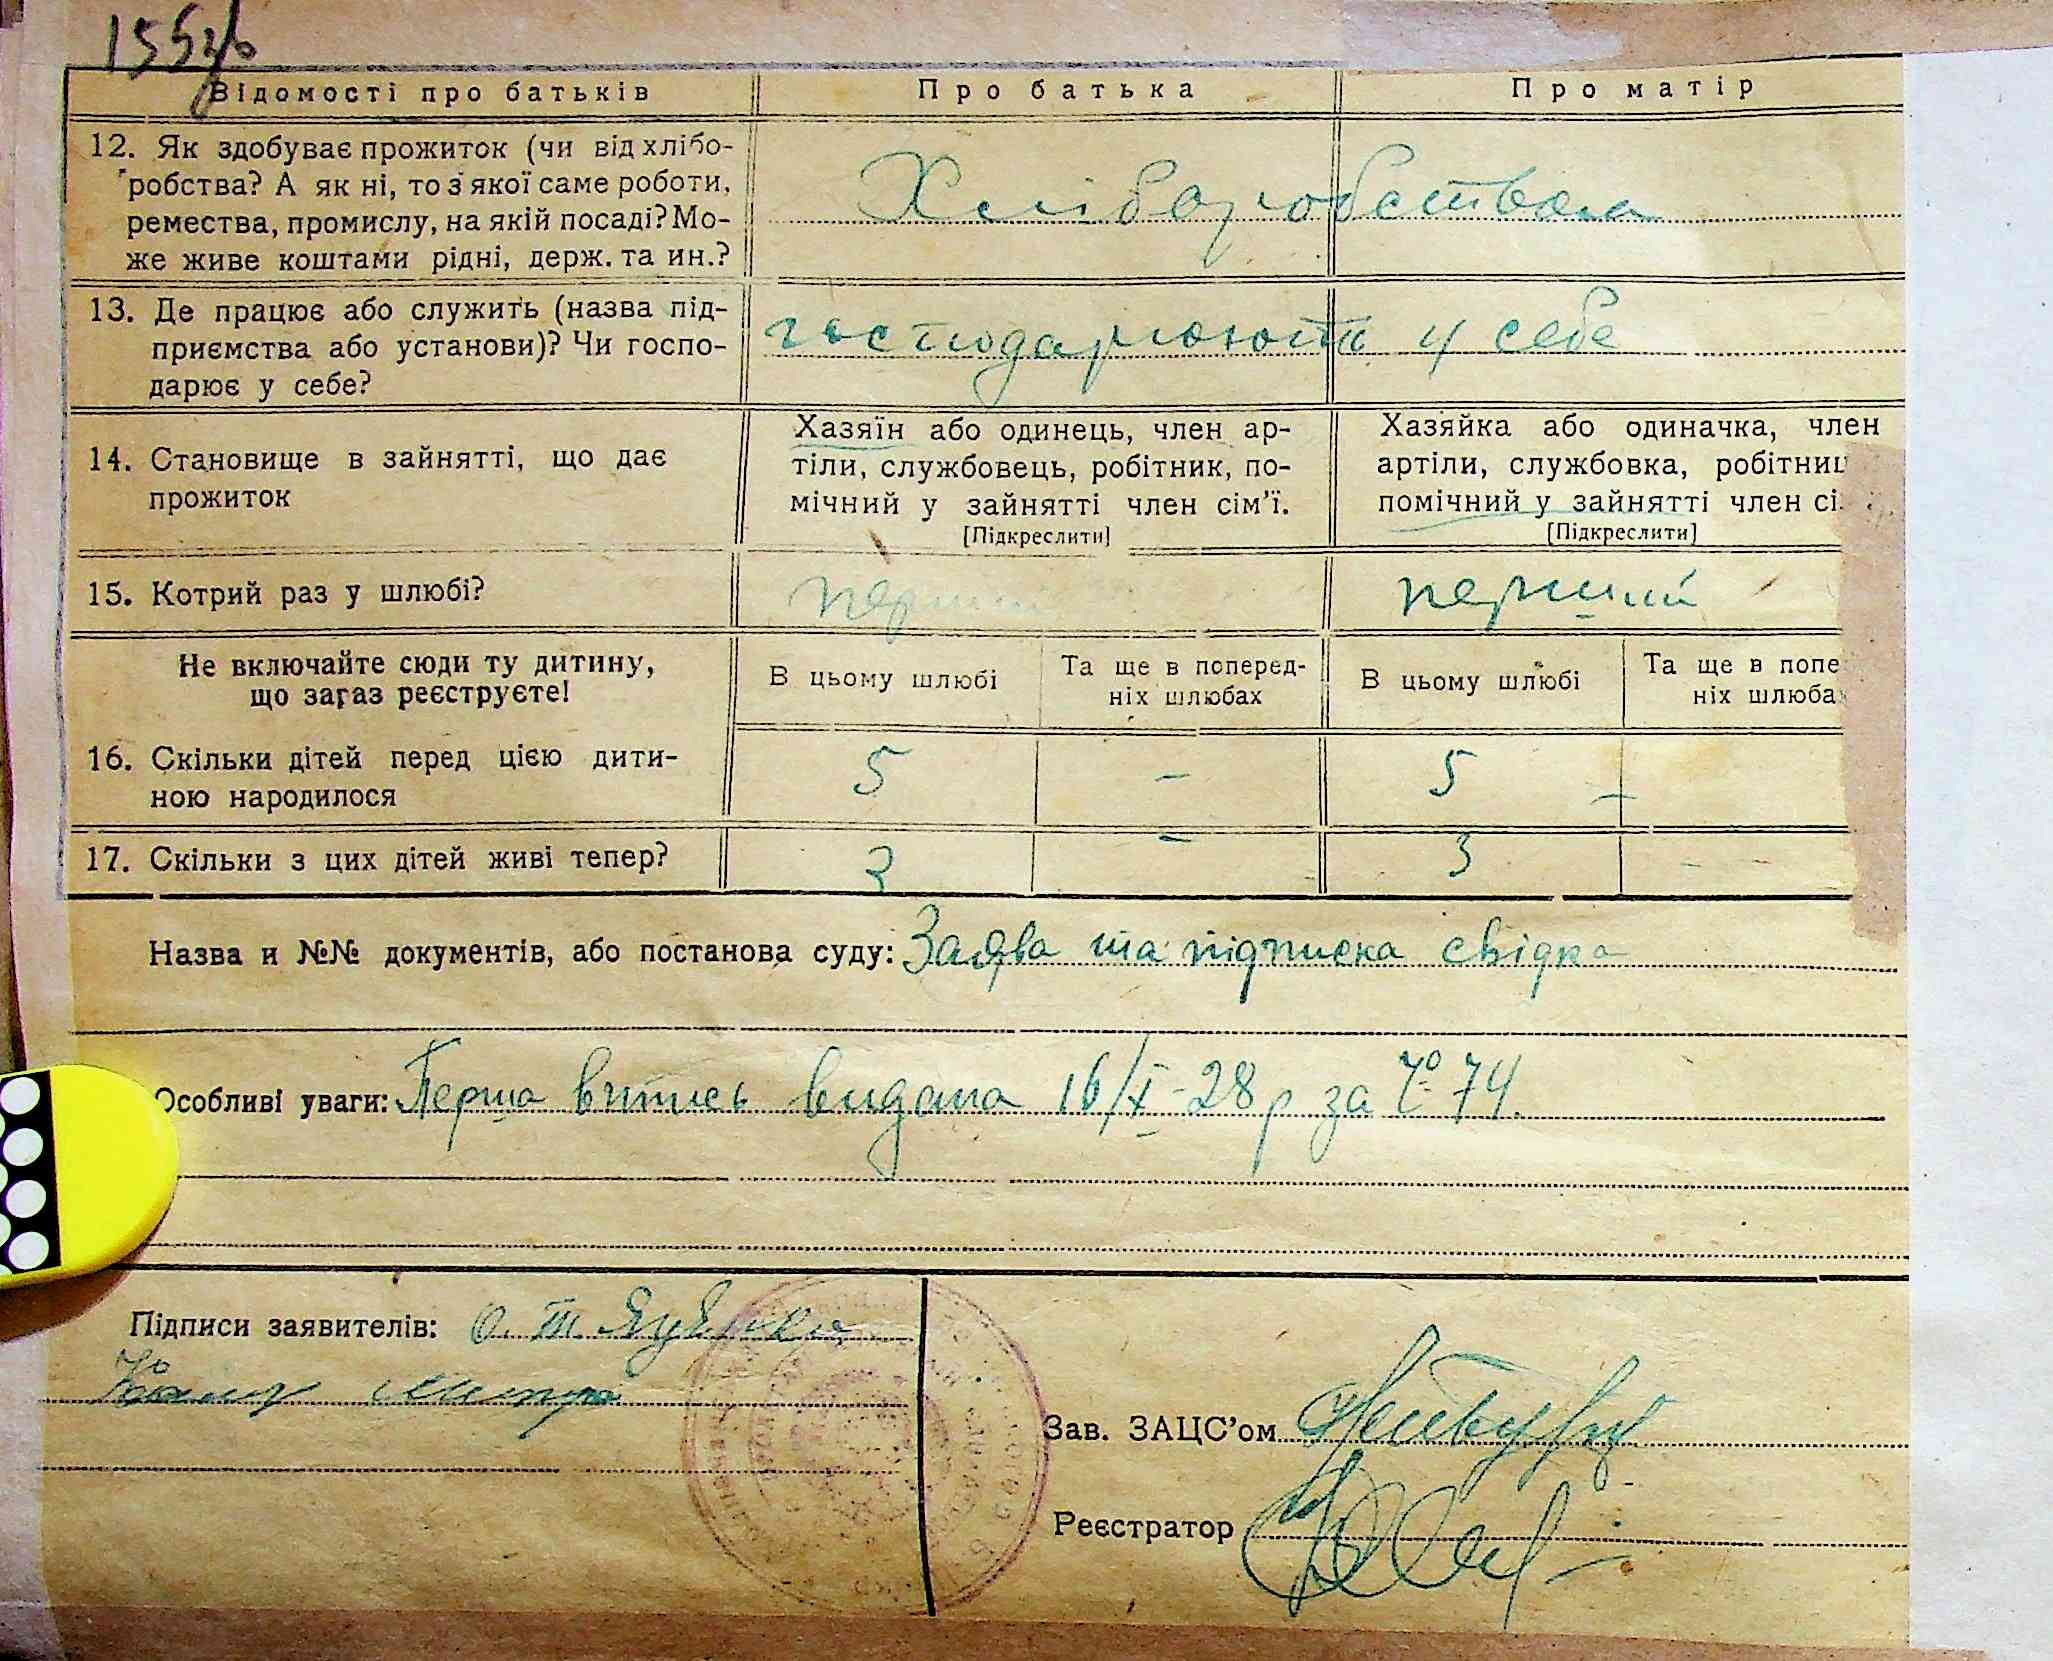 155зв
Відомості про батьків Про батька Про матір
12. Як здобуває прожиток (чи від хлібо-
робства? А як ні, то з якої саме роботи,
ремества, промислу, на якій посаді? Мо-
же живе коштами рідні, держ. та ин.?
Хліборобством
13. Де працює або служить (назва під-
приємства або установи)? Чи госпо-
дарює у себе?
господарюють у себе
14. Становище в зайнятті, що дає
прожиток
Хазяїн або одинець, член ар-
тіли, службовець, робітник, по-
мічний у зайнятті член сім'ї.
[Підкреслити]
Хазяйка або одиначка, член
артіли, службовка, робітниц
помічний у зайнятті член сі
[Підкреслити]
15. Котрий раз у шлюбі?
перший перший
Не включайте сюди ту дитину,
що зараз реєструєте!
В цьому шлюбі
Та ще в поперед-
ніх шлюбах
В цьому шлюбі
Та ще в попе
ніх шлюба
16. Скільки дітей перед цією дити-
ною народилося
5 – 5 –
17. Скільки з цих дітей живі тепер?
3 – 3 – -
Назва и №№ документів, або постанова суду: Заява та підписка свідка
Особливі уваги: Перша витись видана 16/X-28 р за № 74.
Підписи заявителів:
Зав. ЗАЦС'ом
Реєстратор